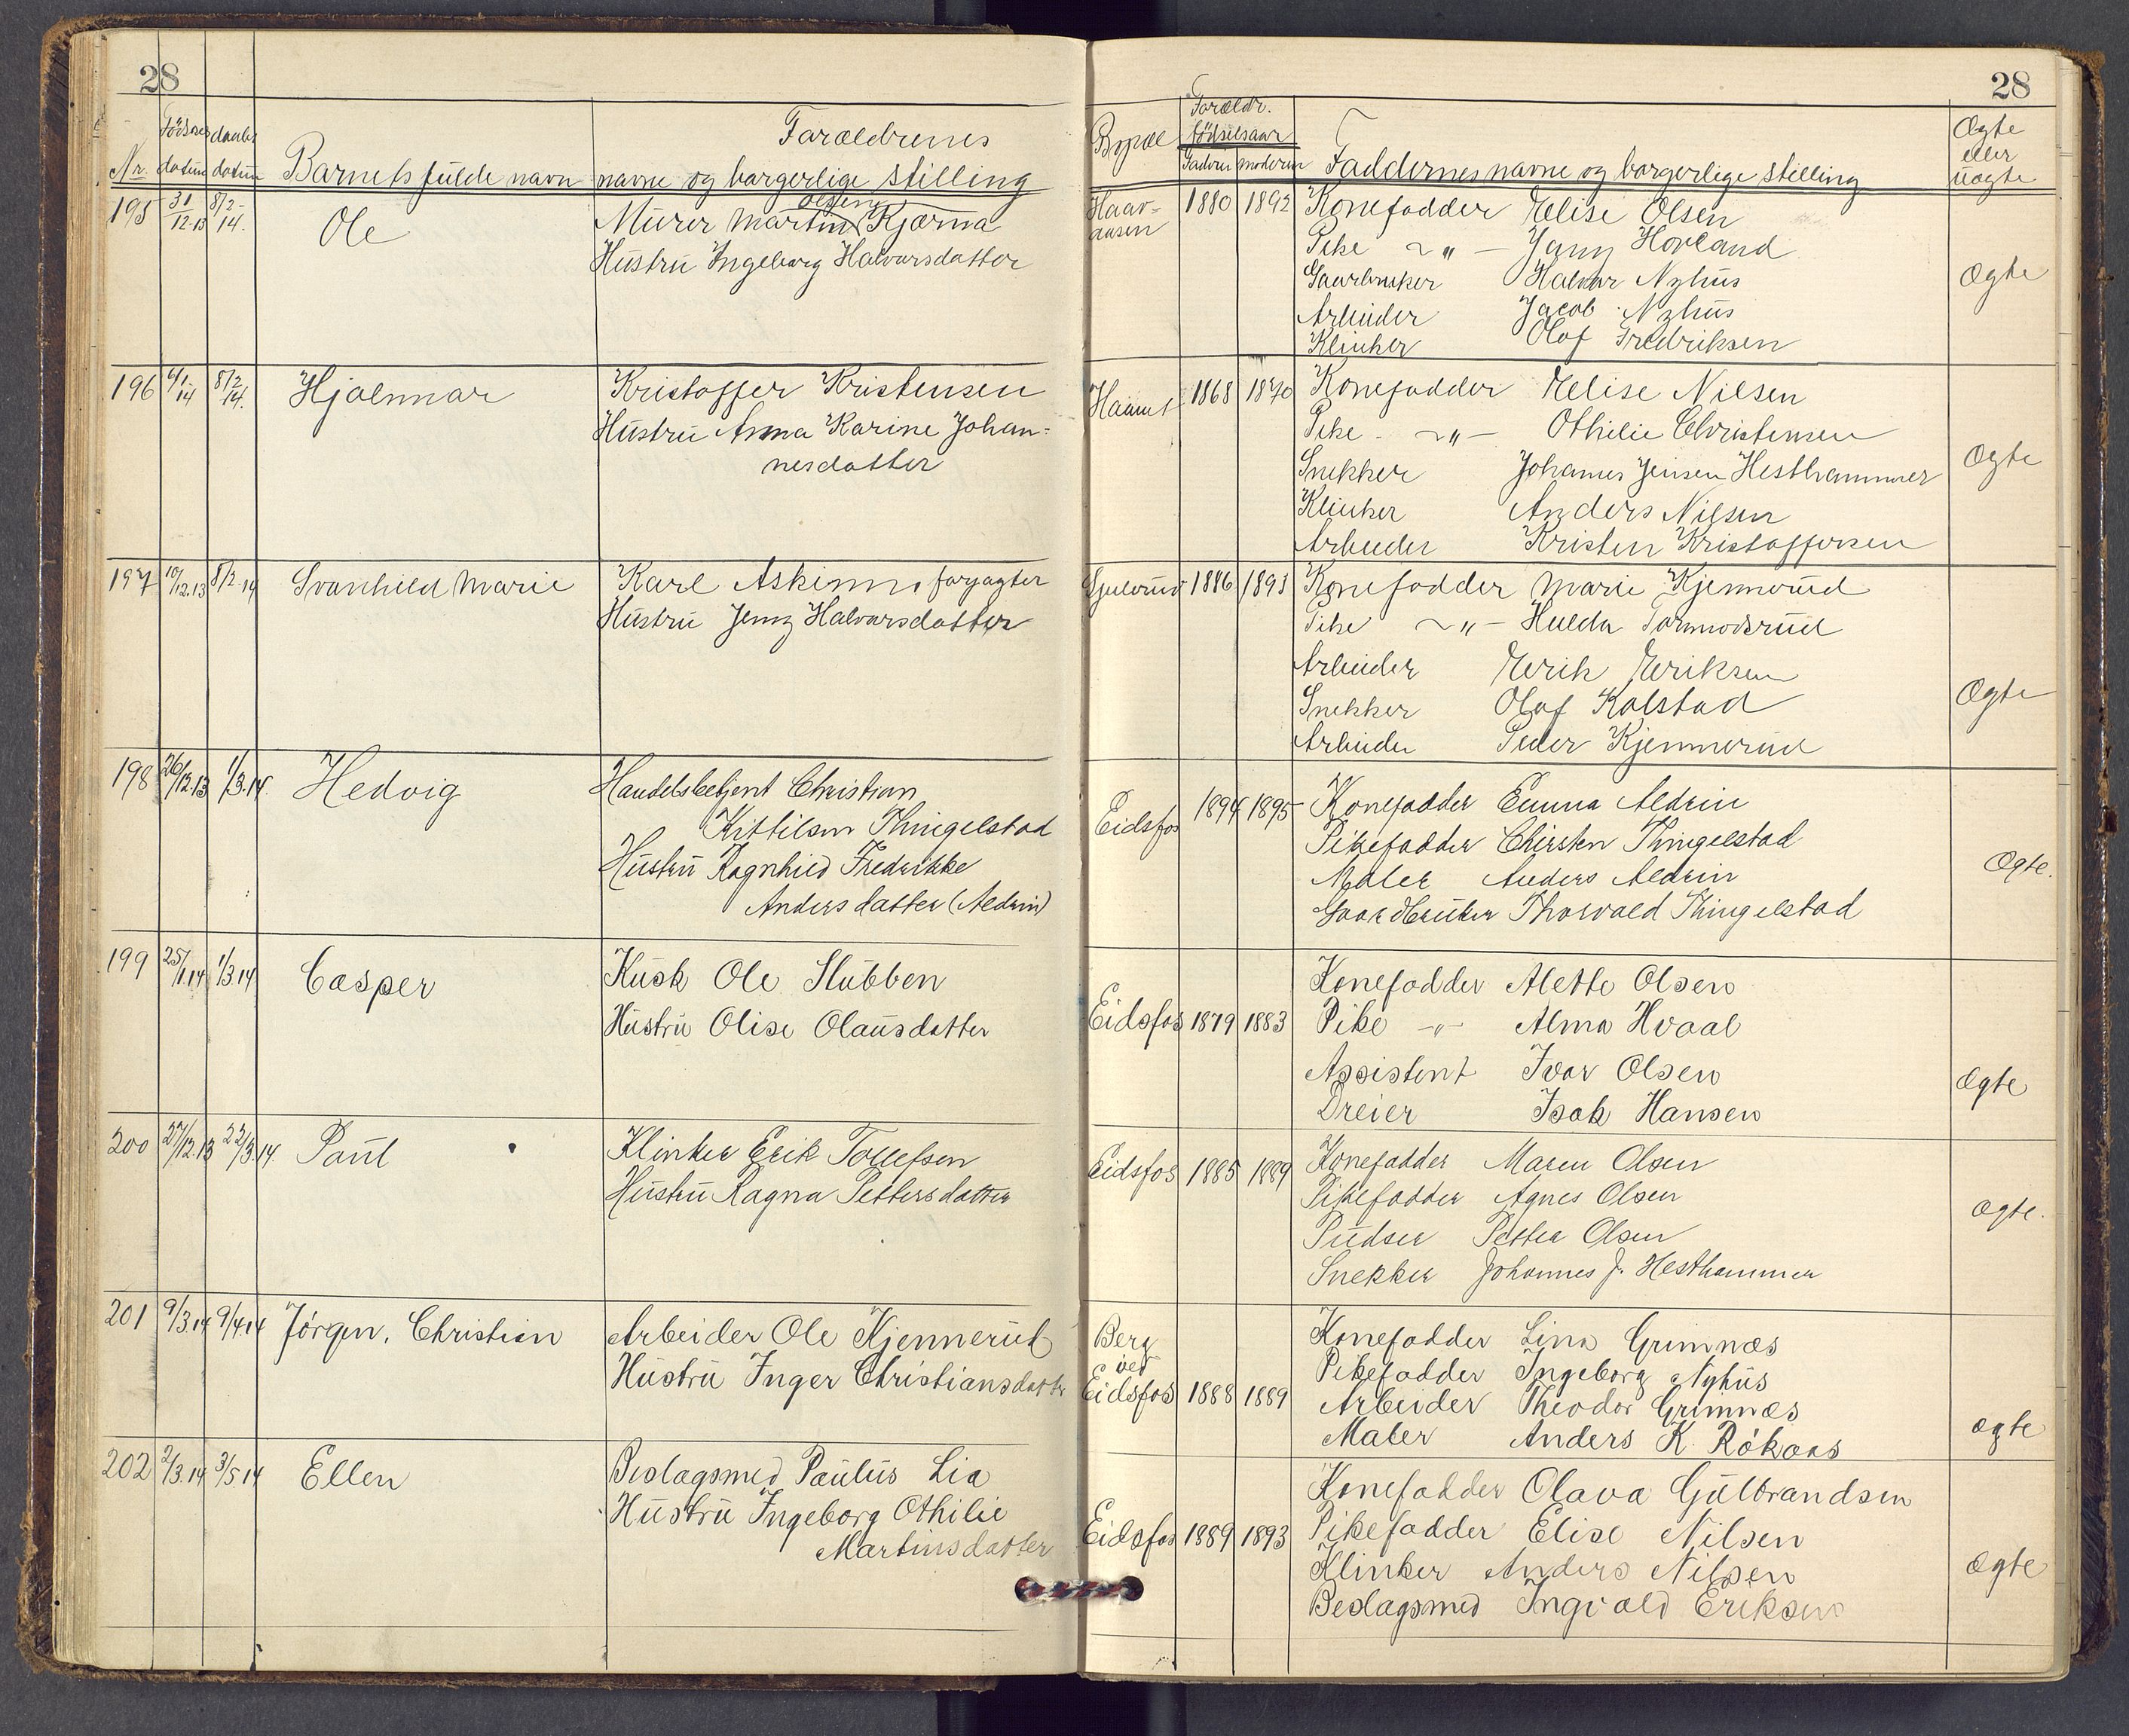 28
28
Nr.
Födsels datum
daabs datum
Barnets fulde navn
Forældrenes
navne og borgerlige stilling
Bopæl
Forældr. födselsaar
Faderen moderen
Faddernes navne og borgerlige stilling
Ægte eller uægte
195 31/12.13 8/2-14. Ole
Murer Martin Olsen Kjærna
Hustru Ingeborg Halvorsdatter
1880 1892
Konefadder Elise Olsen
Pike ~„— Jany Hovland
Gaarbruker Halvor Nyhus
Arbeider Jacob Nyhus
Klinker Olaf Fredriksen
Ægte
196 8/2 14. Hjalmar
Kristoffer Kristensen
Hustru Anna Karine Johan-
nesdatter
1868 1870
Konefadder Elise Nilsen
Pike ~„— Othilie Christensen
Snekker Johanes Jensen Hesthammer
Klinker Anders Nilsen
Arbeider Kristen Kristoffersen
Ægte
197 10/12.13 8/2-14 Svanhild Marie
Karl Askimn forpagter
Hustru Jenny Halvorsdatter
1886 1893
Konefadder Marie Kjennerud
Pike ~„— Hulda Tormodsrud
Arbeider Erik Eriksen
Snekker Olaf Kolstad
Arbeider Peder Kjennerud
Ægte
198 26/12.13 1/3.14. Hedvig
Handelsbetjent Christian
Kittilsen Thingelstad
Hustru Ragnhild Fredrikke
Andersdatter (Aldrin)
Eidsfos 1894 1895
Konefadder Emma Aldrin
Pikefadder Chirsten Thingelstad
Maler Anders Aldrin
Gaardbruker Thorvald Thingelstad
Ægte.
199 25/1.14 1/3 14 Casper
Kusk Ole Stubben
Hustru Olise Olausdatter
Eidsfos 1879 1883
Konefadder Alette Olsen
Pike -„- Alma Hvaal
Assistent Ivar Olsen
Dreier Isak Hansen
Ægte
200 27/12.13 22/3.14. Paul
Klinker Erik Tollefsen
Hustru Ragna Pettersdatter
Eidsfos 1885 1889
Konefadder Maren Olsen
Pikefadder Agnes Olsen
Pudser Petter Olsen
Snekker Johannes J. Hesthammer
ægte.
201 9/3 14 9/4.14 Jörgen, Christian
Arbeider Ole Kjennerud
Hustru Inger Christiansdatter
Berg
ved
Eidsfos 1888 1889
Konefadder Lina Grimnæs
Pikefadder Ingeborg Nyhus
Arbeider Theodor Grimnæs
Maler Anders K. Rökaas
ægte
202 2/3.14 3/5 14 Ellen
Beslagsmed Paulus Lia
Hustru Ingeborg Othilie
Martinsdatter
Eidsfos 1889 1893
Konefadder Olava Gulbrandsen
Pikefadder Elise Nilsen
Klinker Anders Nilsen
Beslagsmed Ingvald Eriksen
ægte